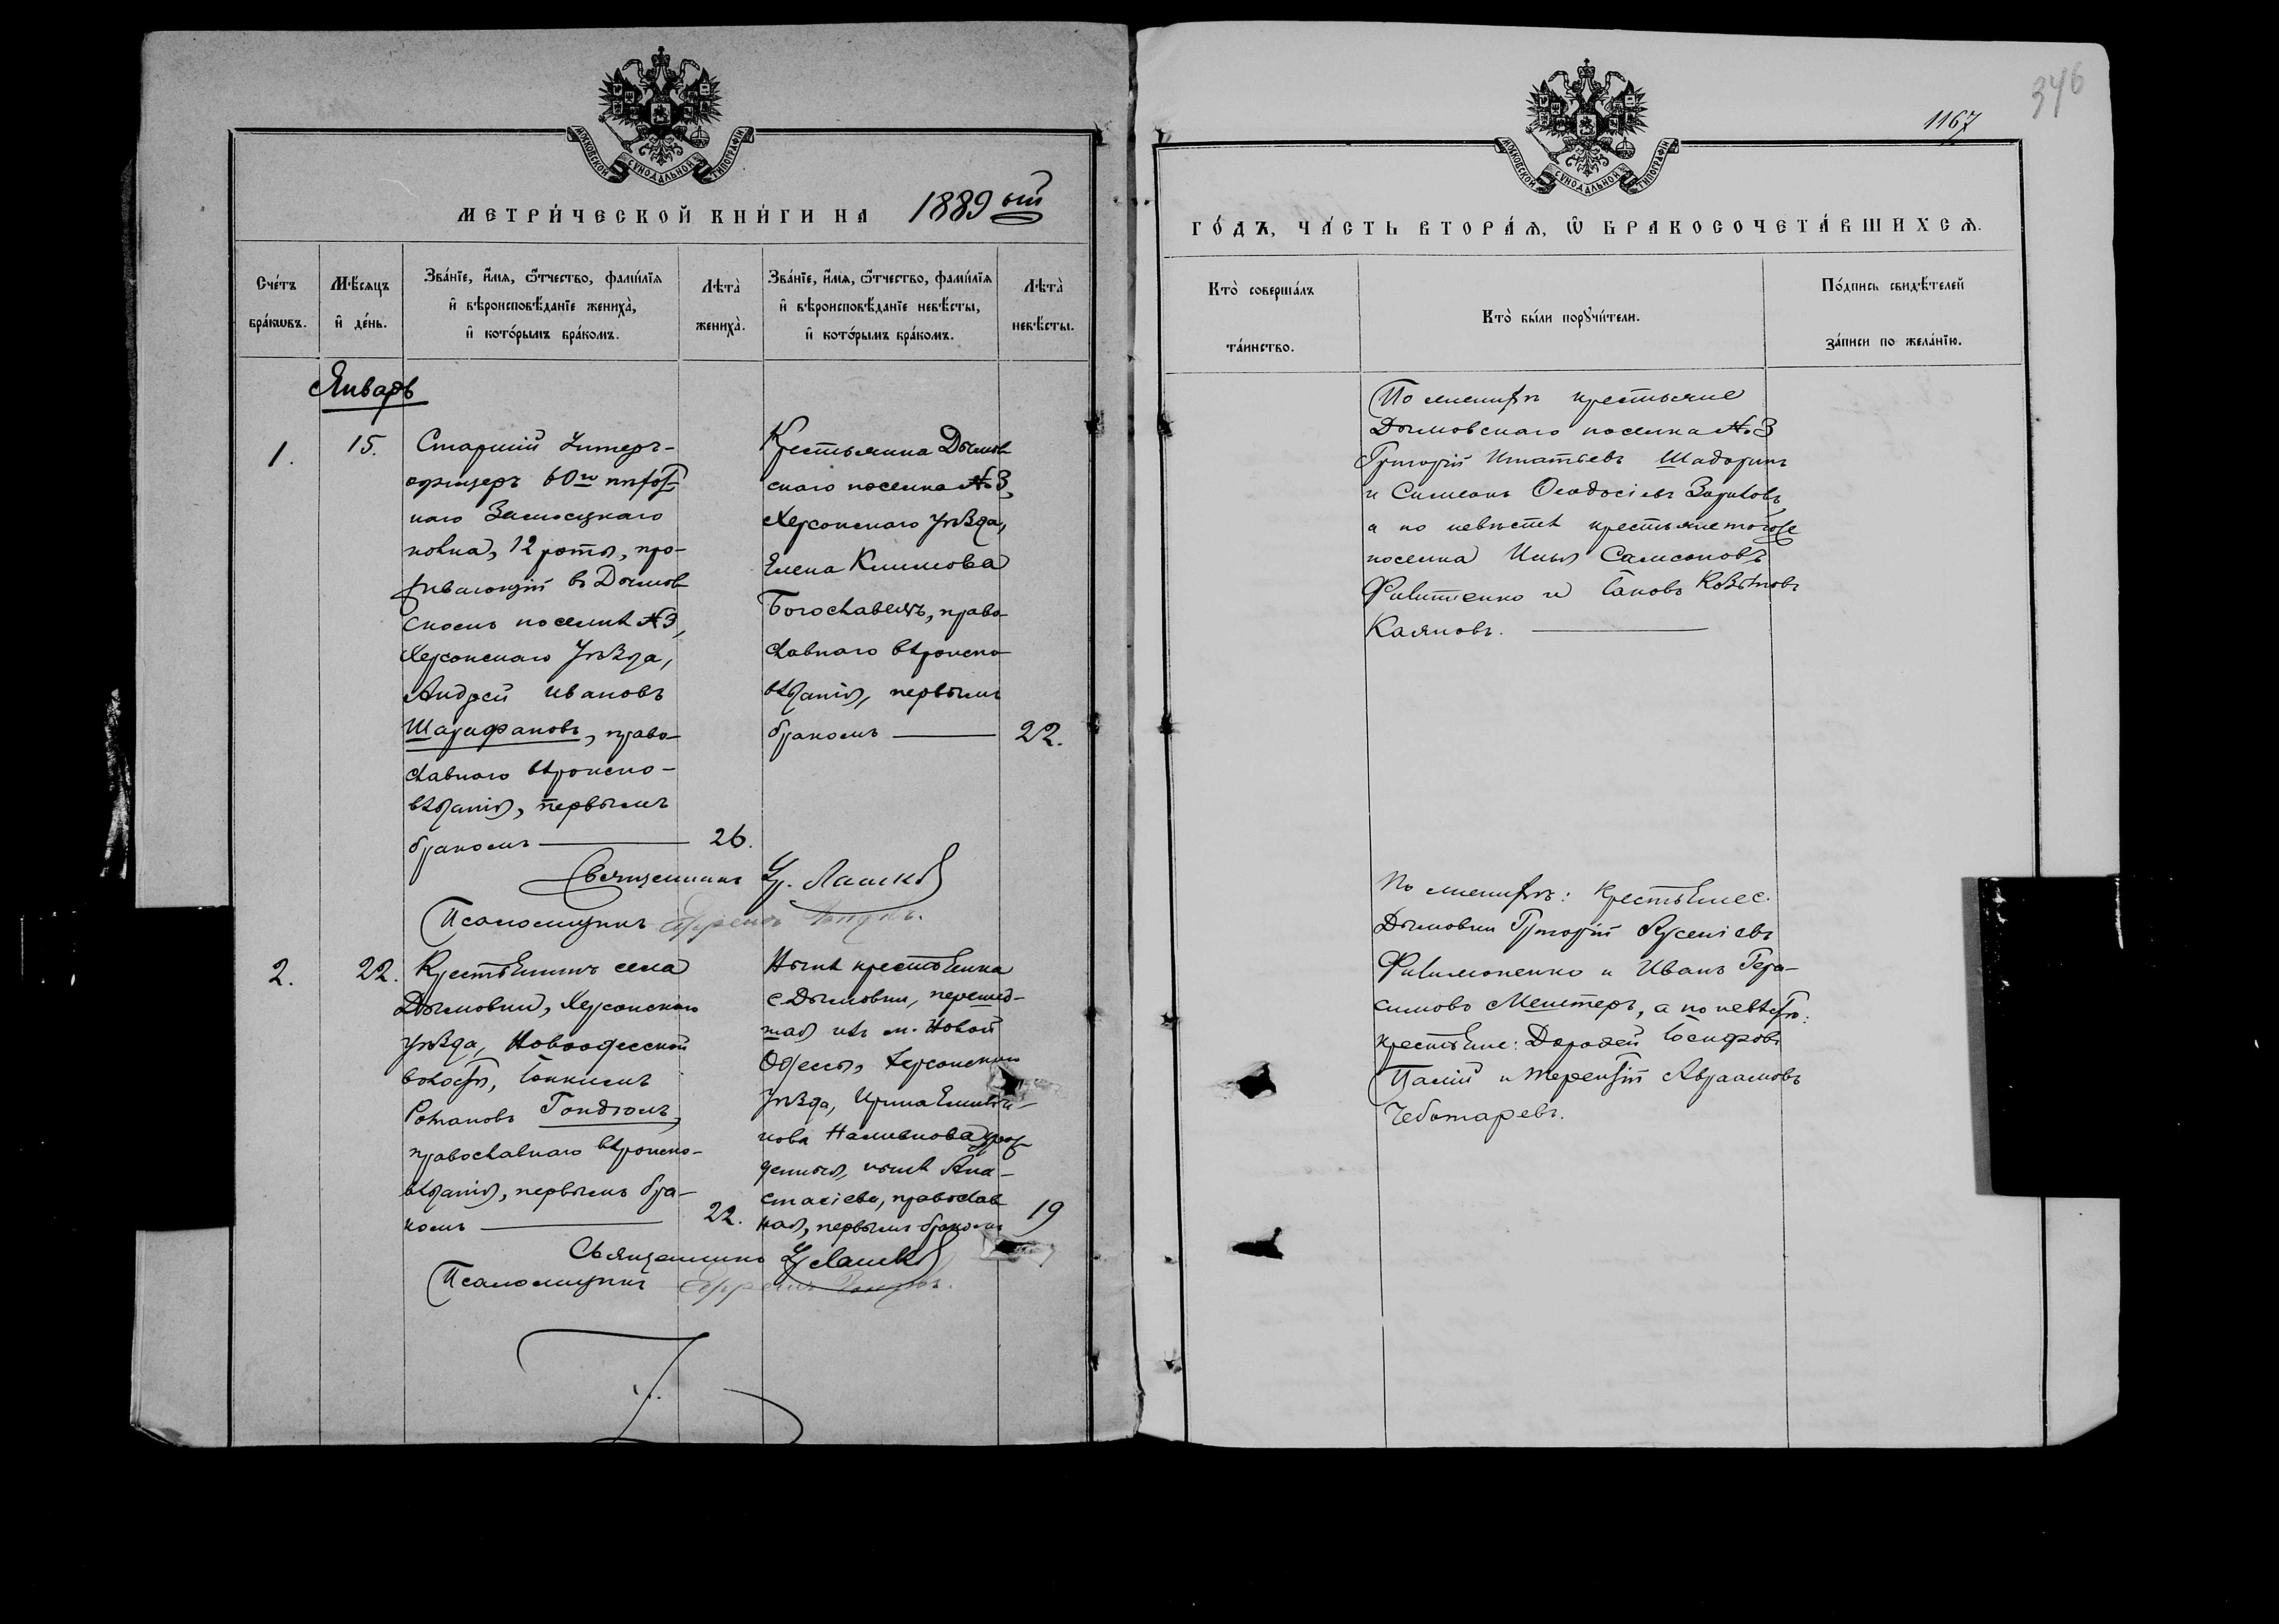 МОСКОВСКОЙ СУНОДАЛЬНОЙ ТИПОГРАФІИ
МЕТРИ́ЧЕСКОЙ КНИ́ГИ НА 1889 ый
Сче́тъ бра́кѡвъ.
Мѣ́сяцъ и҆ де́нь.
Зва́нїе, и҆́мѧ, ѻ҆́тчество, фами́лїѧ
и҆ вѣроисповѣ́данїе жениха̀,
и҆ кото́рымъ бра́комъ.
Лѣта̀ жениха̀.
Зва́нїе, и҆́мѧ, ѻ҆́тчество, фами́лїѧ
и҆ вѣроисповѣ́данїе невѣ́сты,
и҆ кото́рымъ бра́комъ.
Лѣта̀ невѣ́сты.
Январь
1.
15.
Старшій Унтеръ-
офицеръ 60го пѣхот
наго Замосцкаго
полка, 12 роты, про-
живающій въ Дымов
скомъ поселкѣ №3,
Херсонскаго Уѣзда,
Андрей Ивановъ
Шарафановъ, право-
славнаго вѣроиспо-
вѣданія, первымъ
бракомъ
26.
Крестьянка Дымов
скаго поселка №3,
Херсонскаго Уѣзда,
Елена Климова
Богославецъ, право-
славнаго вѣроиспо-
вѣданія, первымъ
бракомъ
22.
Священникъ
Псаломщикъ
2.
22.
Крестьянинъ села
Дымовки, Херсонскаго
уѣзда, Новоодесской
волости, Іоакимъ
Романовъ Гондюкъ,
православнаго вѣроиспо-
вѣданія, первымъ бра-
комъ
22.
Нынѣ крестьянка
с. Дымовки, перешед-
шая изъ м. Новой
Одессы, Херсонскаго
уѣзда, Ирина
урож
денная, нынѣ Ана-
стасіева, православ
ная, первымъ бракомъ
19
Священникъ
Псаломщикъ
346
1167
МОСКОВСКОЙ СУНОДАЛЬНОЙ ТИПОГРАФІИ
ГО́ДЪ, ЧА́СТЬ ВТОРА́Ѧ, Ѽ БРАКОСОЧЕТА́ВШИХСѦ.
Кто̀ соверша́лъ та́инство.
Кто̀ бы́ли порꙋчи́тели.
По́дпись свидѣ́телей
за́писи по жела́нїю.
По женихѣ крестьяне
Дымовскаго поселка №3
Григорій Игнатьевъ Шадоринъ
и Симеонъ Ѳеодосіевъ
а по невѣстѣ крестьяне тогоже
поселка Илья Самсоновъ
и Іаковъ
Каяновъ.
По женихѣ: крестьяне с.
Дымовки Григорій Арсеніевъ
Филимоненко и Иванъ Гера-
симовъ а по невѣстѣ:
крестьяне: Дорофей Іосифовъ
Палій и Терентій Авраамовъ
Чеботаревъ.